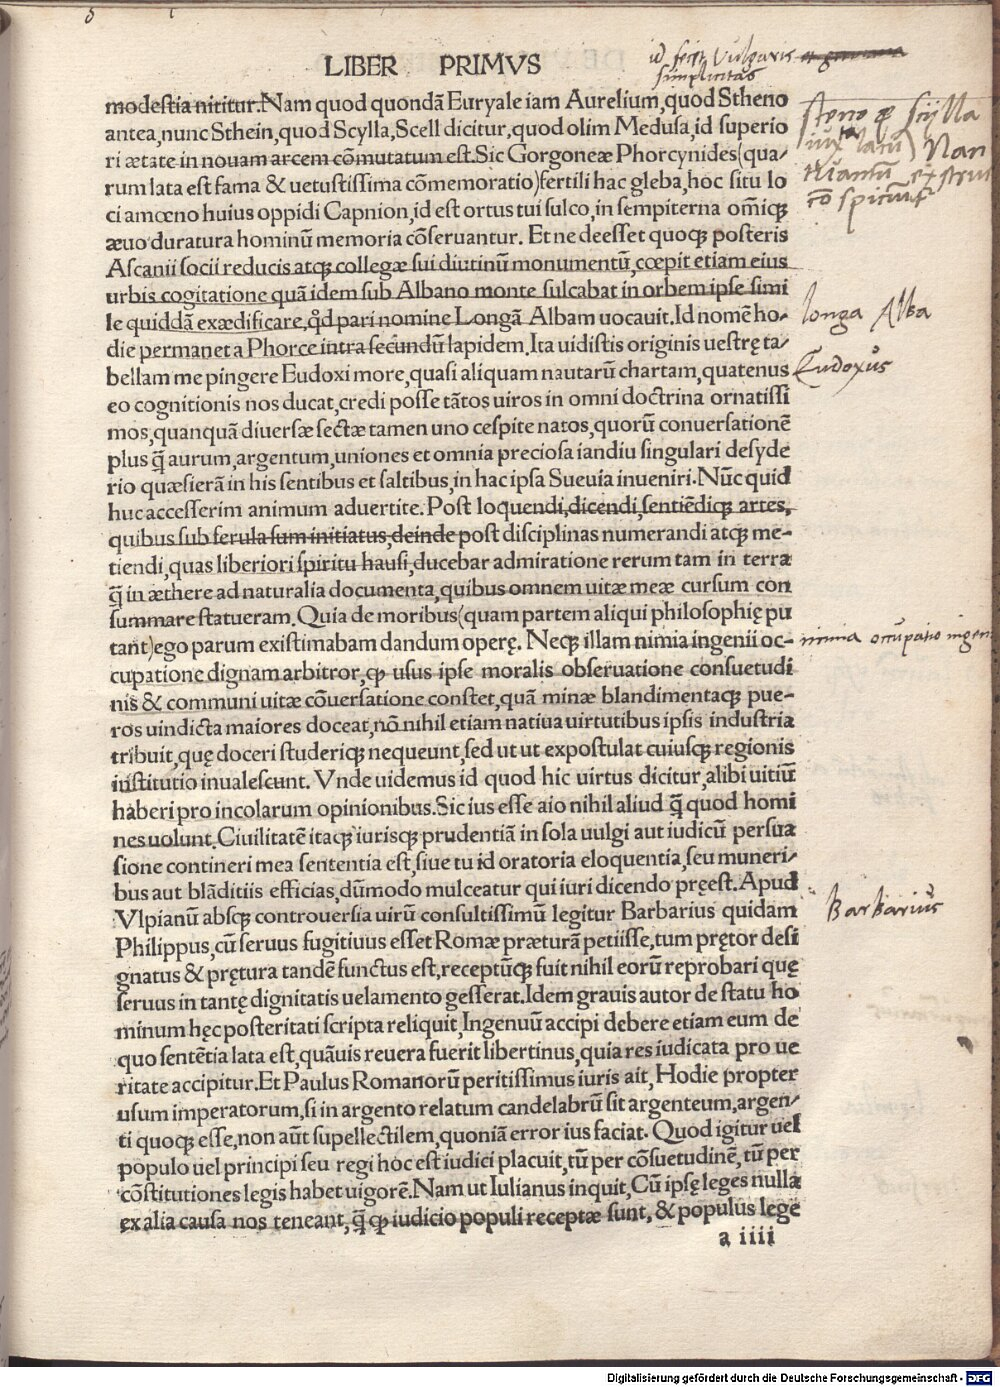 LIBER PRIMVS
id fecit vulgaris
simplicitas
modestia nititur. Nam quod quondā Euryale iam Aurelium, quod Stheno
antea, nunc Sthein, quod Scylla, Scell dicitur, quod olim Medusa, id superio
ri ætate in nouam arcem cōmutatum est. Sic Gorgoneæ Phorcynides (qua-
rum lata est fama & uetustissima cōmemoratio) fertili hac gleba, hoc situ lo
ci amœno huius oppidi Capnion, id est ortus tui sulco, in sempiterna om̄iqꝫ
æuo duratura hominū memoria cōseruantur. Et ne deesset quoqꝫ posteris
Ascanii socii reducis atqꝫ collegæ sui diutinū monumentū, cœpit etiam eius
urbis cogitatione quā idem sub Albano monte sulcabat in orbem ipse simi
le quiddā exædificare, qd̄ pari nomine Longā Albam uocauit. Id nomē ho-
die permanet a Phorce intra secundū lapidem. Ita uidistis originis uestrę ta-
bellam me pingere Eudoxi more, quasi aliquam nautarū chartam, quatenus
eo cognitionis nos ducat, credi posse tātos uiros in omni doctrina ornatissi
mos, quanquā diuersæ sectæ tamen uno cespite natos, quorū conuersationē
plus q̄ aurum, argentum, uniones et omnia preciosa iandiu singulari desyde
rio quæsierā in his sentibus et saltibus, in hac ipsa Sueuia inueniri. Nūc quid
huc accesserim animum aduertite. Post loquendi, dicendi, sentiēdiqꝫ artes,
quibus sub ferula sum initiatus, deinde post disciplinas numerandi atqꝫ me-
tiendi, quas liberiori spiritu hausi, ducebar admiratione rerum tam in terra
q̄ in æthere ad naturalia documenta, quibus omnem uitæ meæ cursum con
summare statueram. Quia de moribus (quam partem aliqui philosophię pu
tant) ego parum existimabam dandum operę. Neqꝫ illam nimia ingenii oc-
cupatione dignam arbitror, ꝙ usus ipse moralis obseruatione consuetudi
nis & communi uitæ cōuersatione constet, quā minæ blandimentaqꝫ pue-
ros uindicta maiores doceat, nō nihil etiam natiua uirtutibus ipsis industria
tribuit, quę doceri studeriqꝫ nequeunt, sed ut ut expostulat cuiusqꝫ regionis
institutio inualescunt. Vnde uidemus id quod hic uirtus dicitur, alibi uitiū
haberi pro incolarum opinionibus. Sic ius esse aio nihil aliud q̄ quod homi
nes uolunt. Ciuilitatē itaqꝫ iurisqꝫ prudentiā in sola uulgi aut iudicū persua
sione contineri mea sententia est, siue tu id oratoria eloquentia, seu muneri-
bus aut blāditiis efficias, dūmodo mulceatur qui iuri dicendo pręest. Apud
Vlpianū absqꝫ controuersia uirū consultissimū legitur Barbarius quidam
Philippus, cū seruus fugitiuus esset Romæ præturā petiisse, tum prętor desi
gnatus & prętura tandē functus est, receptūqꝫ fuit nihil eorū reprobari quę
seruus in tantę dignitatis uelamento gesserat. Idem grauis autor de statu ho
minum hęc posteritati scripta reliquit, Ingenuū accipi debere etiam eum de
quo sentētia lata est, quāuis reuera fuerit libertinus, quia res iudicata pro ue
ritate accipitur. Et Paulus Romanorū peritissimus iuris ait, Hodie propter
usum imperatorum, si in argento relatum candelabrū sit argenteum, argen-
ti quoqꝫ esse, non aūt supellectilem, quoniā error ius faciat. Quod igitur uel
populo uel principi seu regi hoc est iudici placuit, tū per cōsuetudinē, tū per
cōstitutiones legis habet uigorē. Nam ut Iulianus inquit, Cū ipsę leges nulla
ex alia causa nos teneant, q̄ ꝙ iudicio populi receptæ sunt, & populus lege
a iiii
Steno et Scylla
longa Alba
Eudoxus
nimia occupatio ingen
Barbarius
Digitalisierung gefördert durch die Deutsche Forschungsgemeinschaft - DFG